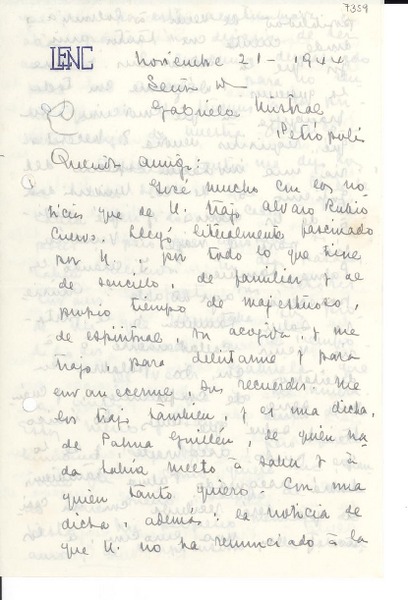 7359
LENC
Noviembre 21 - 1944
Gabriela Mistral
Petrópolis
Querida amiga:
Gocé mucho con las no
ticias que de U. trajo Alvaro Rubio
Cuervo. Llegó literalmente fascinado
por U., por todo lo que tiene
de sencillo, de familiar y al
propio tiempo de majestuoso,
de espiritual, su acogida, y me
trajo, para deleitarme y para
envanecerme, sus recuerdos. Me
los trajo también, y es una dicha,
de Palma Guillén, de quien na
da había vuelto a saber y a
quien tanto quiero. Con una
dicha, además: la noticia de
que U. no ha renunciado a la